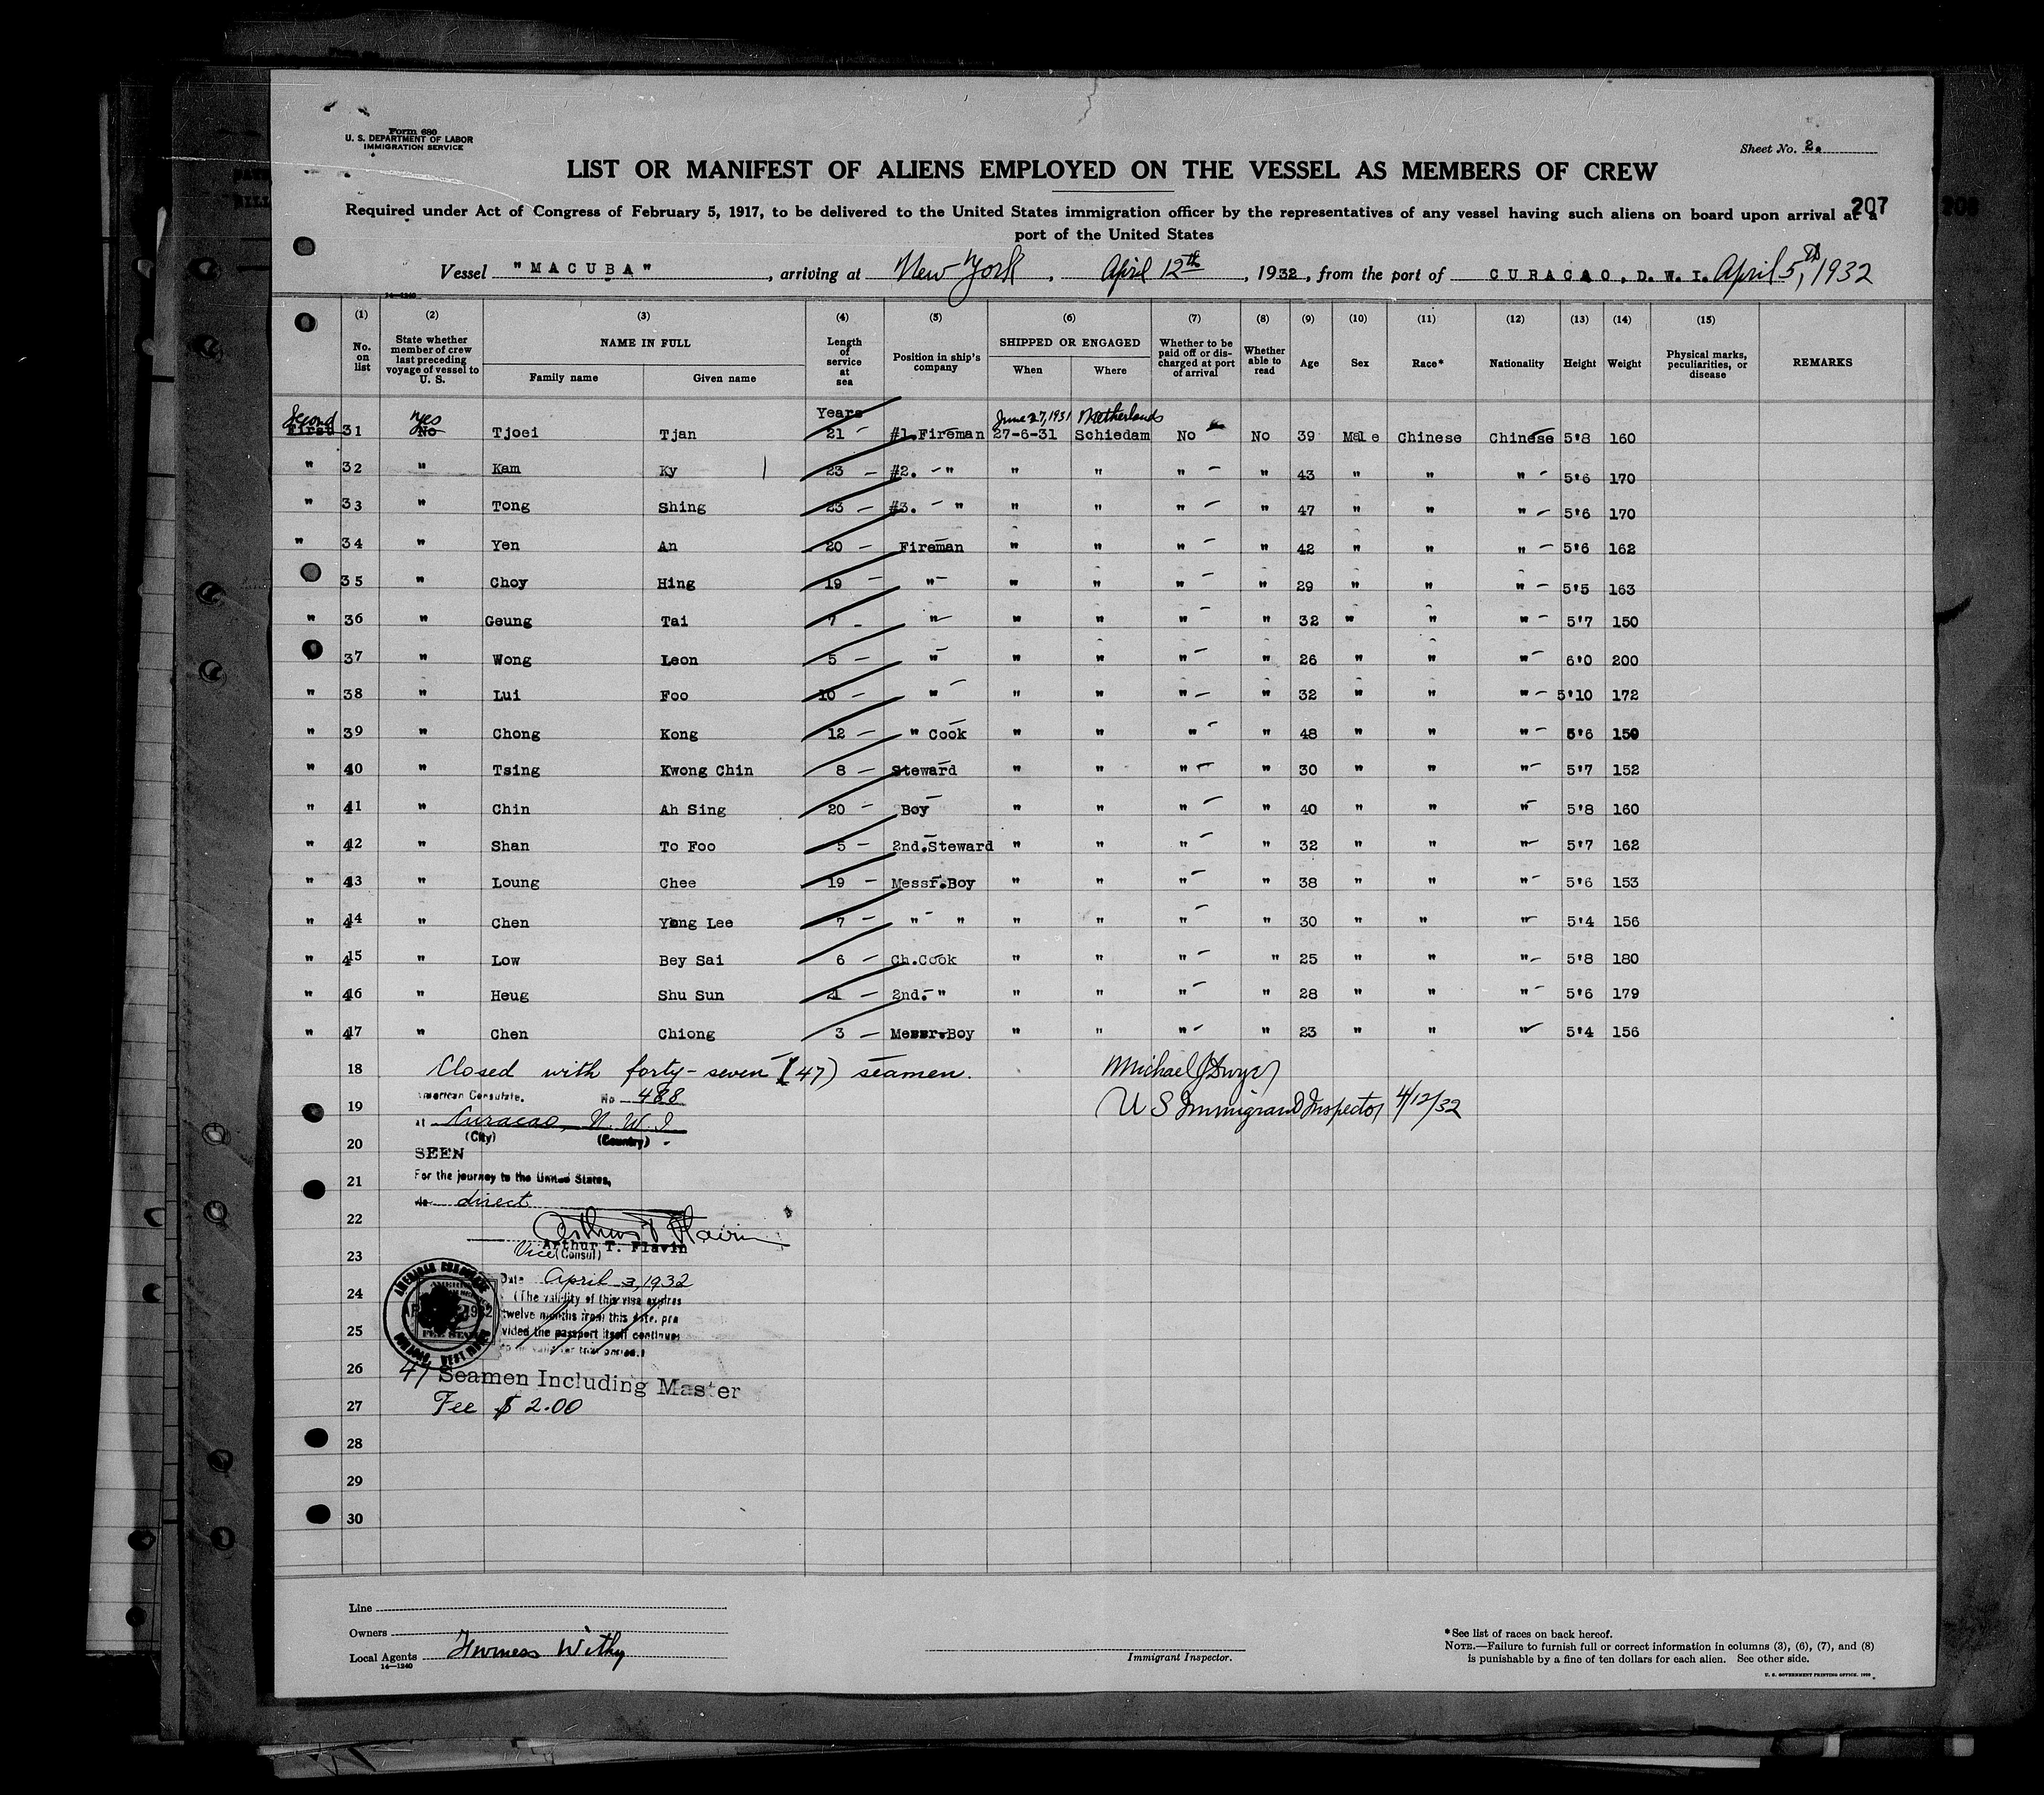 Form 680
U. S. DEPARTMENT OF LABOR
IMMIGRATION SERVICE
Sheet No. 2.
LIST OR MANIFEST OF ALIENS EMPLOYED ON THE VESSEL AS MEMBERS OF CREW
207
Required under Act of Congress of February 5, 1917, to be delivered to the United States immigration officer by the representatives of any vessel having such aliens on board upon arrival at a
port of the United States
Vessel "MACUBA", arriving at New York, April 12th, 1932, from the port of CURACAO, D. W. I. April 5th, 1932
14—1240
(1) (2) (3) (4) (5) (6) (7) (8) (9) (10) (11) (12) (13) (14) (15)
No. on list | State whether member of crew last preceding voyage of vessel to U. S. | NAME IN FULL | Family name | Given name | Length of service at sea | Position in ship's company | SHIPPED OR ENGAGED | When | Where | Whether to be paid off or discharged at port of arrival | Whether able to read | Age | Sex | Race* | Nationality | Height | Weight | Physical marks, peculiarities, or disease | REMARKS
Second yes Years June 27, 1931 Netherlands
First 31 No Tjoei Tjan 21 #1.Fireman 27-6-31 Schiedam No No 39 Male Chinese Chinese 5'8 160
" 32 " Kam Ky 23 #2. " " " " " 43 " " " 5'6 170
" 33 " Tong Shing 23 #3. " " " " " 47 " " " 5'6 170
" 34 " Yen An 20 Fireman " " " " 42 " " " 5'6 162
35 " Choy Hing 19 " " " " " 29 " " " 5'5 163
" 36 " Geung Tai 7 " " " " " 32 " " " 5'7 150
" 37 " Wong Leon 5 " " " " " 26 " " " 6'0 200
" 38 " Lui Foo 10 " " " " " 32 " " " 5'10 172
" 39 " Chong Kong 12 " Cook " " " " 48 " " " 5'6 150
" 40 " Tsing Kwong Chin 8 Steward " " " " 30 " " " 5'7 152
" 41 " Chin Ah Sing 20 Boy " " " " 40 " " " 5'8 160
" 42 " Shan To Foo 5 2nd.Steward " " " " 32 " " " 5'7 162
" 43 " Loung Chee 19 Messr.Boy " " " " 38 " " " 5'6 153
" 414 " Chen Yong Lee 7 " " " " " " 30 " " " 5'4 156
" 415 " Low Bey Sai 6 Ch.Cook " " " " 25 " " " 5'8 180
" 416 " Heug Shu Sun 21 2nd. " " " " " 28 " " " 5'6 179
" 417 " Chen Chiong 3 Messr.Boy " " " " 23 " " " 5'4 156
18 Closed with forty-seven (47) seamen. Michael J Dwyer
American Consulate. No 488
19 U S Immigrant Inspector 4/12/32
at Curacao, N. W. I.
(City) (Country)
20
SEEN
21 For the journey to the United States,
via direct
22
Arthur T. Flavin
Vice (Consul)
23
Date April 3, 1932
24 (The validity of this visa expires
twelve months from this date, pro
25 vided the passport itself continues
26
47 Seamen Including Master
27 Fee $ 2.00
28
29
30
Line
Owners
Local Agents Furness Withy
14—1240
Immigrant Inspector.
*See list of races on back hereof.
NOTE.—Failure to furnish full or correct information in columns (3), (6), (7), and (8)
is punishable by a fine of ten dollars for each alien. See other side.
U. S. GOVERNMENT PRINTING OFFICE.